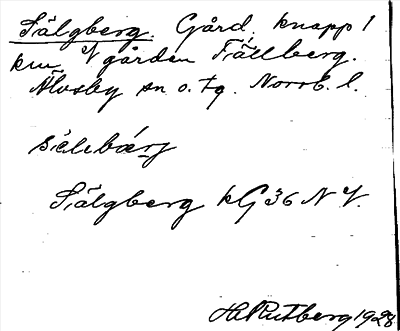 Sälgberg. Gård, knapp 1
km V gården Fällberg.
Älvsby sn o. tg. Norrb. l.
Sälgberg kG 36 N V.
H. Rutberg 1928